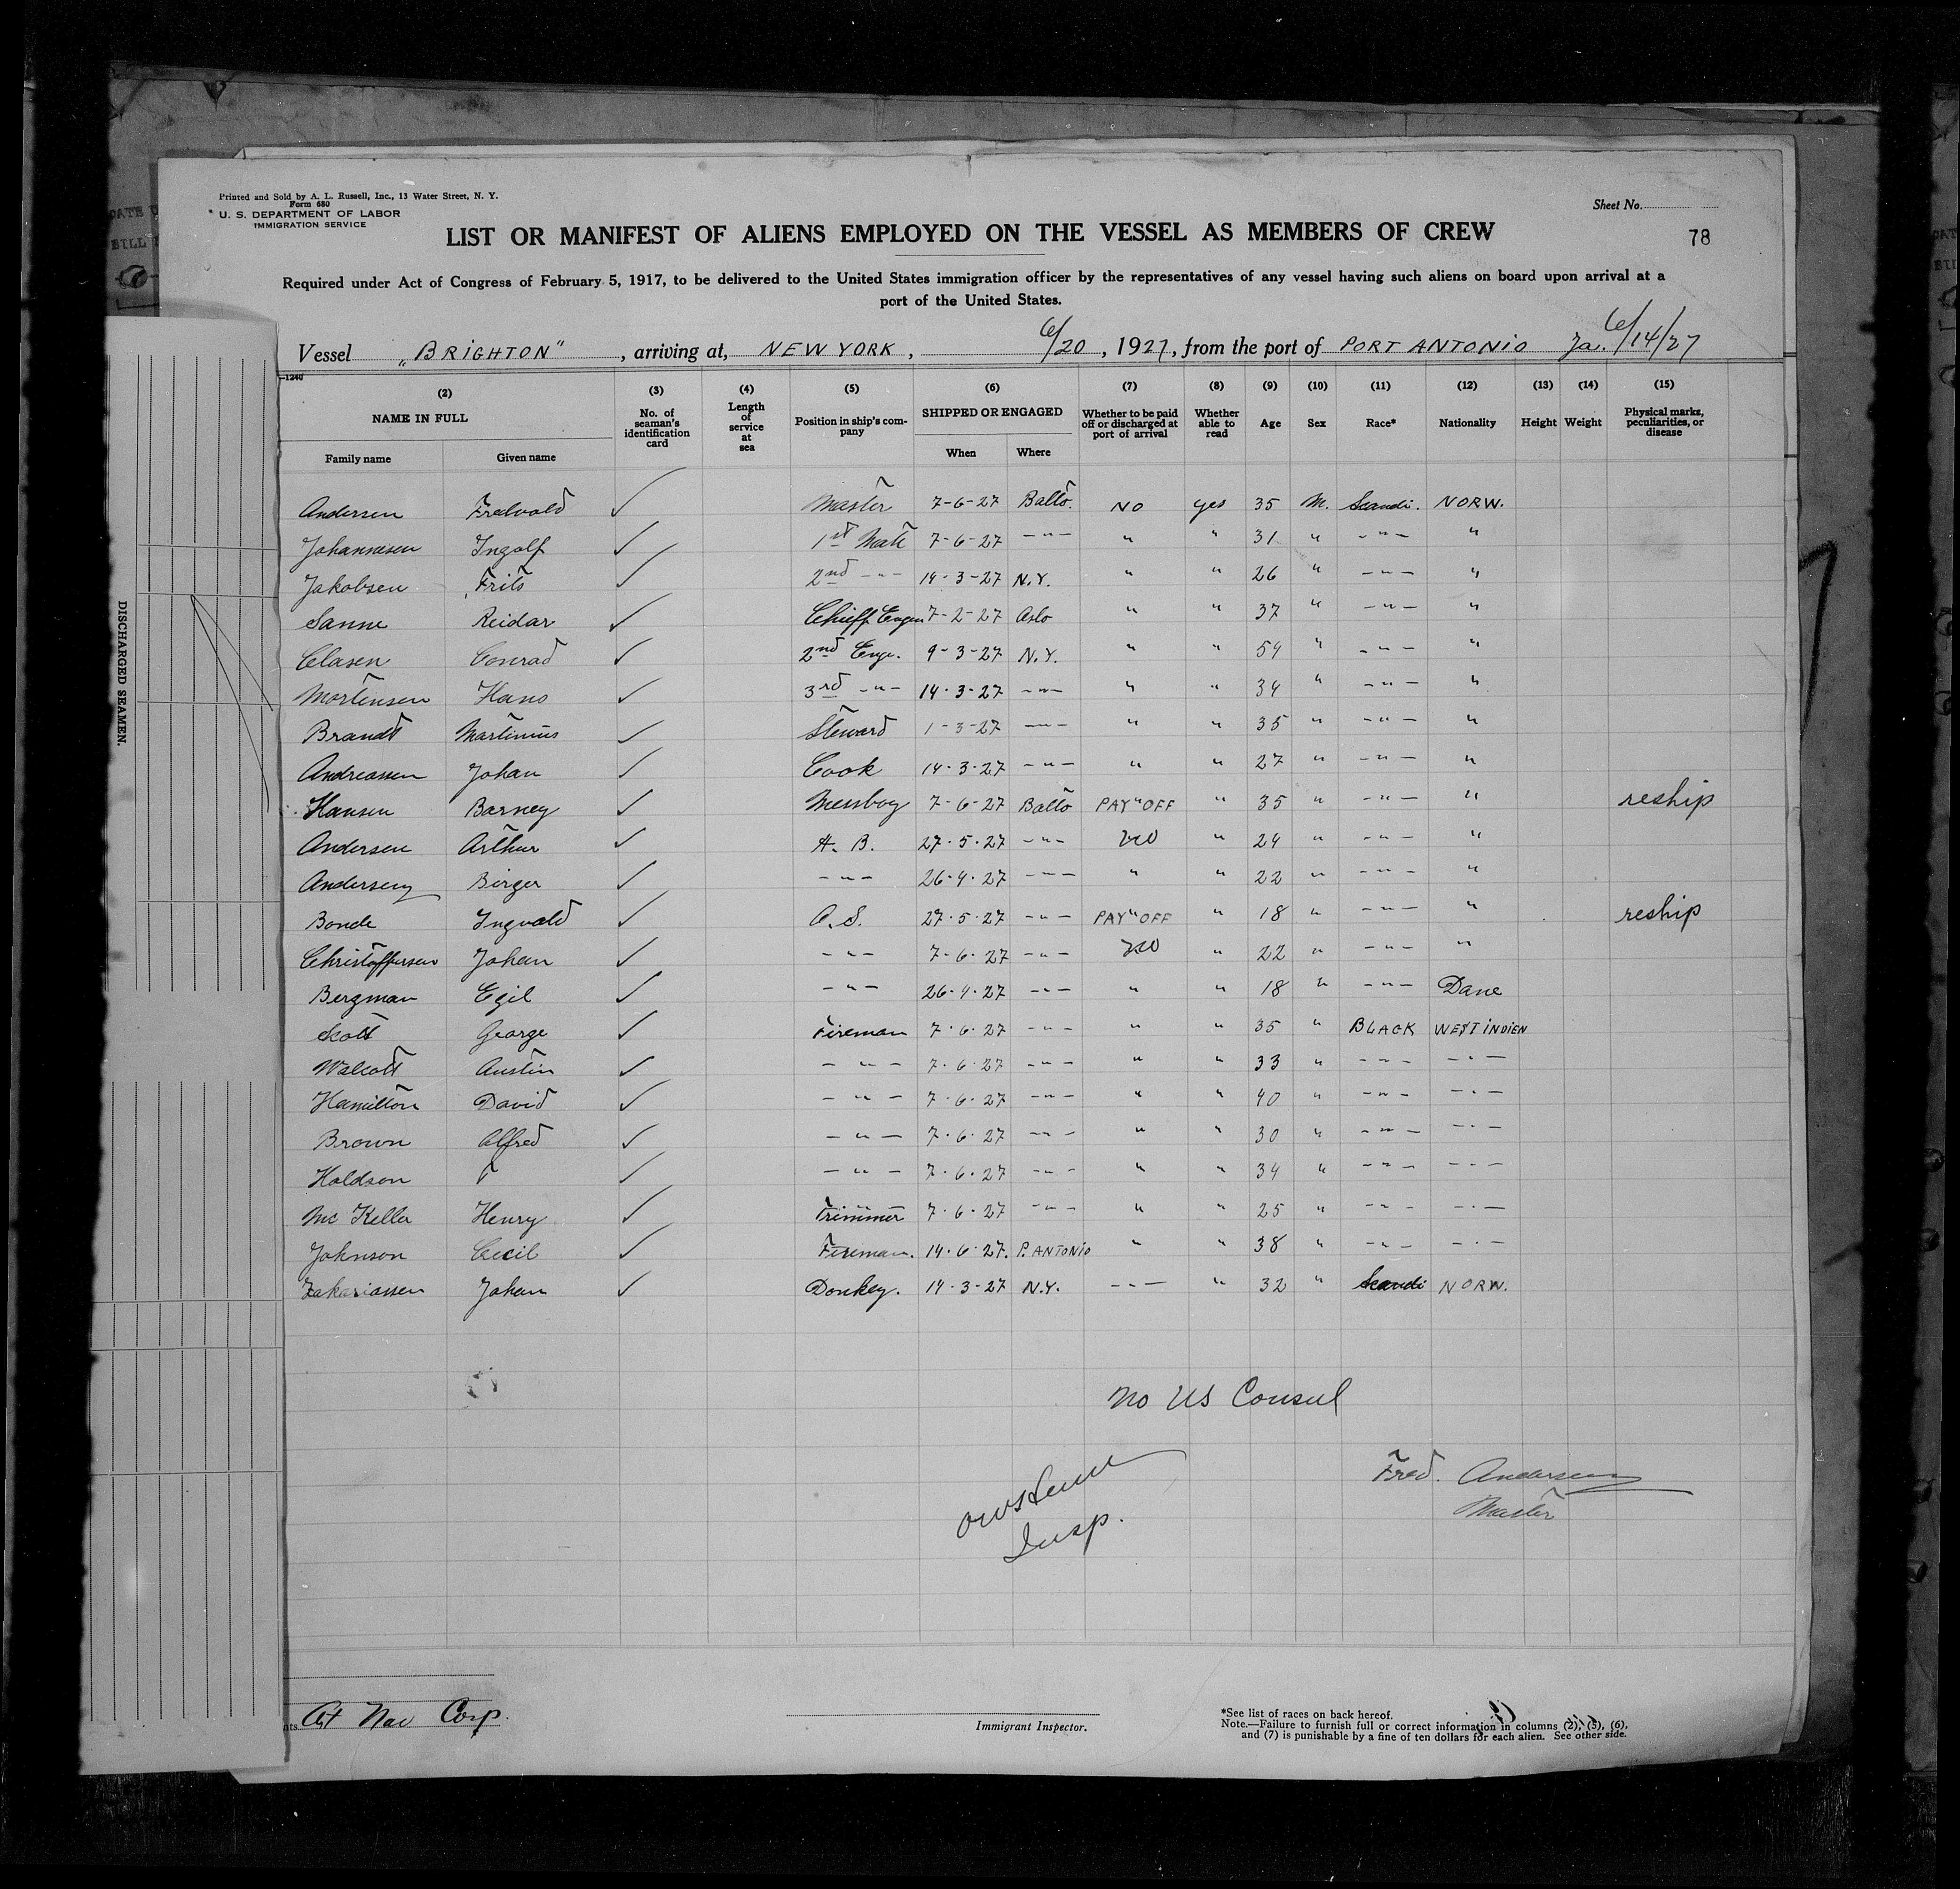 Printed and Sold by A. L. Russell, Inc., 13 Water Street, N. Y.
Form 680
U. S. DEPARTMENT OF LABOR
IMMIGRATION SERVICE
Sheet No.
LIST OR MANIFEST OF ALIENS EMPLOYED ON THE VESSEL AS MEMBERS OF CREW
78
Required under Act of Congress of February 5, 1917, to be delivered to the United States immigration officer by the representatives of any vessel having such aliens on board upon arrival at a
port of the United States.
Vessel "BRIGHTON", arriving at, NEW YORK, 6/20, 1927, from the port of PORT ANTONIO Ja. 6/14/27
—1240
(2) (3) (4) (5) (6) (7) (8) (9) (10) (11) (12) (13) (14) (15)
NAME IN FULL No. of seaman's identification card Length of service at sea Position in ship's company SHIPPED OR ENGAGED Whether to be paid off or discharged at port of arrival Whether able to read Age Sex Race* Nationality Height Weight Physical marks, peculiarities, or disease
Family name Given name When Where
Andersen Fredvold ✓ Master 7-6-27 Balto. NO yes 35 M. Scandi. NORW.
Johannesen Ingolf ✓ 1st Mate 7-6-27 -"- " " 31 " -"- "
Jakobsen Frits ✓ 2nd -"- 14-3-27 N.Y. " " 26 " -"- "
Sanne Reidar ✓ Chieff Engen 7-2-27 Oslo " " 37 " -"- "
Clasen Conrad ✓ 2nd Enge. 9-3-27 N.Y. " " 54 " -"- "
Mortensen Hans ✓ 3rd -"- 14-3-27 -"- " " 34 " -"- "
Brandt Martinius ✓ Steward 1-3-27 -"- " " 35 " -"- "
Andreassen Johan ✓ Cook 14-3-27 -"- " " 27 " -"- "
Hansen Barney ✓ Messboy 7-6-27 Balto PAY "OFF " 35 " -"- " reship
Andersen Arthur ✓ A. B. 27-5-27 -"- no " 24 " -"- "
Andersen Birger ✓ -"- 26-4-27 -"- " " 22 " -"- "
Bonde Ingvald ✓ O. S. 27-5-27 -"- PAY "OFF " 18 " -"- " reship
Christoffersen Johan ✓ -"- 7-6-27 -"- no " 22 " -"- "
Bergman Egil ✓ -"- 26-4-27 -"- " " 18 " -"- Dane
Scott George ✓ Fireman 7-6-27 -"- " " 35 " BLACK WEST INDIEN
Walcott Austin ✓ -"- 7-6-27 -"- " " 33 " -"- -"-
Hamilton David ✓ -"- 7-6-27 -"- " " 40 " -"- -"-
Brown Alfred ✓ -"- 7-6-27 -"- " " 30 " -"- -"-
Holdson ✓ -"- 7-6-27 -"- " " 34 " -"- -"-
Mc Keller Henry ✓ Trimmer 7-6-27 -"- " " 25 " -"- -"-
Johnson Cecil ✓ Fireman. 14-6-27. P. ANTONIO " " 38 " -"- -"-
Zakariassen Johan ✓ Donkey. 14-3-27 N.Y. -"- " 32 " Scandi NORW.
DISCHARGED SEAMEN.
No US Consul
Fred. Andersen
Master
Insp.
nts At Nav Corp.
Immigrant Inspector.
*See list of races on back hereof.
Note.—Failure to furnish full or correct information in columns (2), (5), (6),
and (7) is punishable by a fine of ten dollars for each alien. See other side.